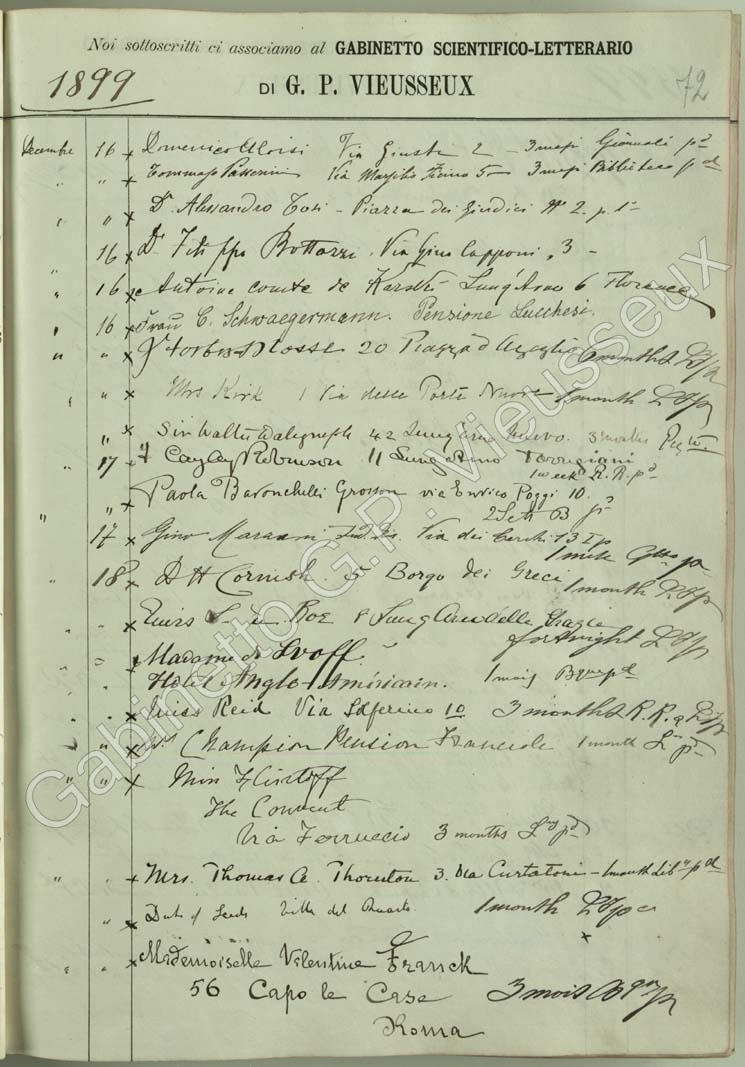 Noi sottoscritti ci associamo al GABINETTO SCIENTIFICO-LETTERARIO
1899
DI G. P. VIEUSSEUX
72
Decembre 16 x Domenico Via Giusti 2 - 3 mesi Giornali pd
" " x Tommaso Passerini Via Marsilio Ficino 5 3 mesi Biblioteca pd
" " x Dr. Alessandro Tosi - Piazza dei Giudici No 2. p. 1o
16 x Dr. Filippo Bottazzi. Via Gino Capponi, 3 -
" 16 x Antoine comte de Lung'Arno 6 Florence
" 16 x Frau C. Schwaegermann. Pensione Lucchesi.
" " x Forbes Mosse 20 Piazza d'Azeglio 6 months
" " x Mrs Kirk 1 Via delle Porte Nuove 1 month
" x Sir Walter Dalrymple 42 Lung'Arno Nuovo. 3 months
" 17 x Cayley Robinson 11 Lung'Arno Torrigiani
1 week R. R. pd
x Paola Baronchelli Grosson via Enrico Poggi 10.
2 Sett B pd
" 17 x Gino Via dei Cerchi 13 I p
1 mese
18 x D H Cornish. 5 Borgo dei Greci 1 month
" " x Roe 8 Lung'Arno delle Grazie
fortnight
" = x Madame de Lvoff
Hotel Anglo-Américain. 1 mois pd
" " x Miss Reid Via Solferino 10 3 months R. R. &
" " x Champion Pension Francioli 1 month pd
" " x Miss
The Convent
Via Ferruccio 3 months pd
" " x Mrs. Thomas A. Thornton 3. Via Curtatone - 1 month Liby pd
" x Duke of Leeds Villa del Quarto 1 month
x
" " x Mademoiselle Valentine Franck
56 Capo le Case 3 mois
Roma
Gabinetto G.P. Vieusseux